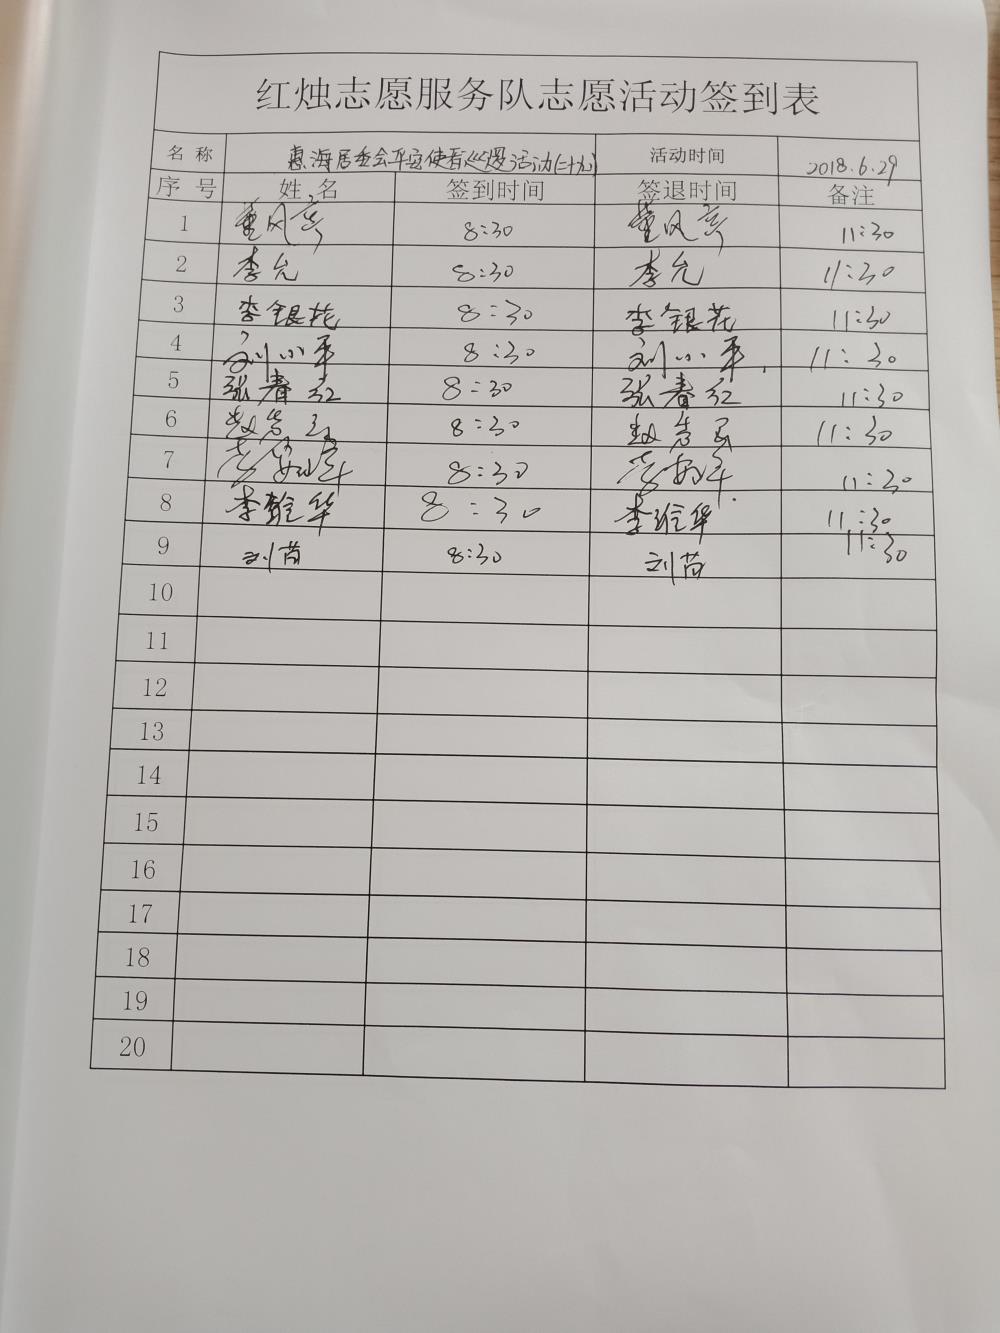 红烛志愿服务队志愿活动签到表
名 称 惠海居委会平安使者巡逻活动(二十九) 活动时间 2018.6.29
序 号 姓 名 签到时间 签退时间 备注
1 董风 8:30 董风 11:30
2 李允 8:30 李允 11:30
3 李银花 8:30 李银花 11:30
4 刘小平 8:30 刘小平 11:30
5 张春红 8:30 张春红 11:30
6 赵 8:30 赵 11:30
7 8:30 11:30
8 李 华 8:30 李 华 11:30
9 刘 8:30 刘 11:30
10
11
12
13
14
15
16
17
18
19
20